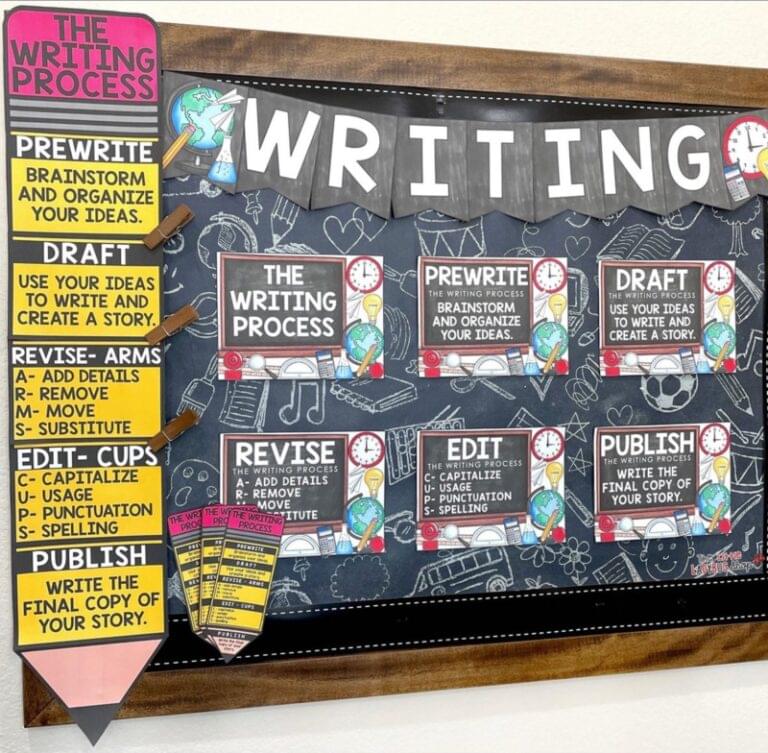 THE
WRITING
PROCESS
PREWRITE
BRAINSTORM
AND ORGANIZE
YOUR IDEAS.
DRAFT
USE YOUR IDEAS
TO WRITE AND
CREATE A STORY.
REVISE- ARMS
A- ADD DETAILS
R- REMOVE
M- MOVE
S- SUBSTITUTE
EDIT- CUPS
C- CAPITALIZE
U- USAGE
P- PUNCTUATION
S- SPELLING
PUBLISH
WRITE THE
FINAL COPY OF
YOUR STORY.
WRITING
THE
WRITING
PROCESS
PREWRITE
THE WRITING PROCESS
BRAINSTORM
AND ORGANIZE
YOUR IDEAS.
DRAFT
THE WRITING PROCESS
USE YOUR IDEAS
TO WRITE AND
CREATE A STORY.
REVISE
THE WRITING PROCESS
A- ADD DETAILS
R- REMOVE
MOVE
TITUTE
EDIT
THE WRITING PROCESS
C- CAPITALIZE
U- USAGE
P- PUNCTUATION
S- SPELLING
PUBLISH
THE WRITING PROCESS
WRITE THE
FINAL COPY OF
YOUR STORY.
THE WRITING
PROCESS
PREWRITE
DRAFT
REVISE - ARMS
EDIT - CUPS
PUBLISH